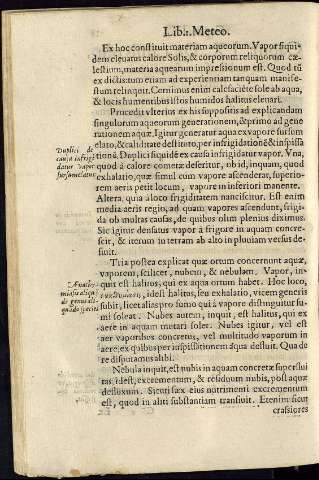 Lib. 1. Meteo.
Ex hoc constituit materiam aqueorum. Vapor siqui-
dem eleuatus calore Solis, & corporum reliquorum cæ-
lestium, materia aquearum impressionum est. Quod tū
ex dictis: tum etiam ad experientiam tanquam manife-
stum relinquit. Cernimus enim calefaciēte sole ab aqua,
& locis humentibus istos humidos halitus eleuari.
Procedit vlterius ex his suppositis ad explicandam
singulorum aquæorum generationem, & primo ad gene-
rationem aquæ. Igitur generatur aqua ex vapore sursom
elato, & caliditate destituto, per infrigidationē & inspissa-
tionē. Duplici siquidē ex causa infrigidatur vapor. Vna,
quod à calore cometæ deseritur, ob id, inquam, quod
exhalatio, quæ simul cum vapore ascenderat, superio-
rem aeris petit locum, vapore in inferiori manente.
Altera, quia à loco frigiditatem nanciscitur. Est enim
media aeris regio, ad quam vapores ascendunt, frigi-
da ob multas causas, de quibus olim plenius diximus.
Sic igitur densatus vapor à frigore in aquam concre-
scit, & iterum in terram ab alto in pluuiam versus de-
fluit.
Duplici de
causa infrigi
datur vapor
sursum elatus
Tria postea explicat quæ ortum concernunt aquæ,
vaporem, scilicet, nubem, & nebulam. Vapor, in-
quit est halitus, qui ex aqua ortum habet. Hoc loco,
idest halitus, seu exhalatio, vicem generis
subit, licet alias pro fumo qui à vapore distinguitur su-
mi soleat. Nubes autem, inquit, est halitus, qui ex
aere in aquam metari solet. Nubes igitur, vel est
aer vaporibus concretus, vel multitudo vaporum in
aere; ex quibus per inspissitionem aqua desluit. Qua de
re disputamus alibi.
pro genere ali
quādo species
Nebula inquit, est nubis in aquam concretæ superflui
tas, idest, excrementum, & residuum nubis, post aquæ
defluxum. Sicuti fæx eius nutrimenti excrementum
est, quod in aliti substantiam transiuit. Etenim sicut
crassiores